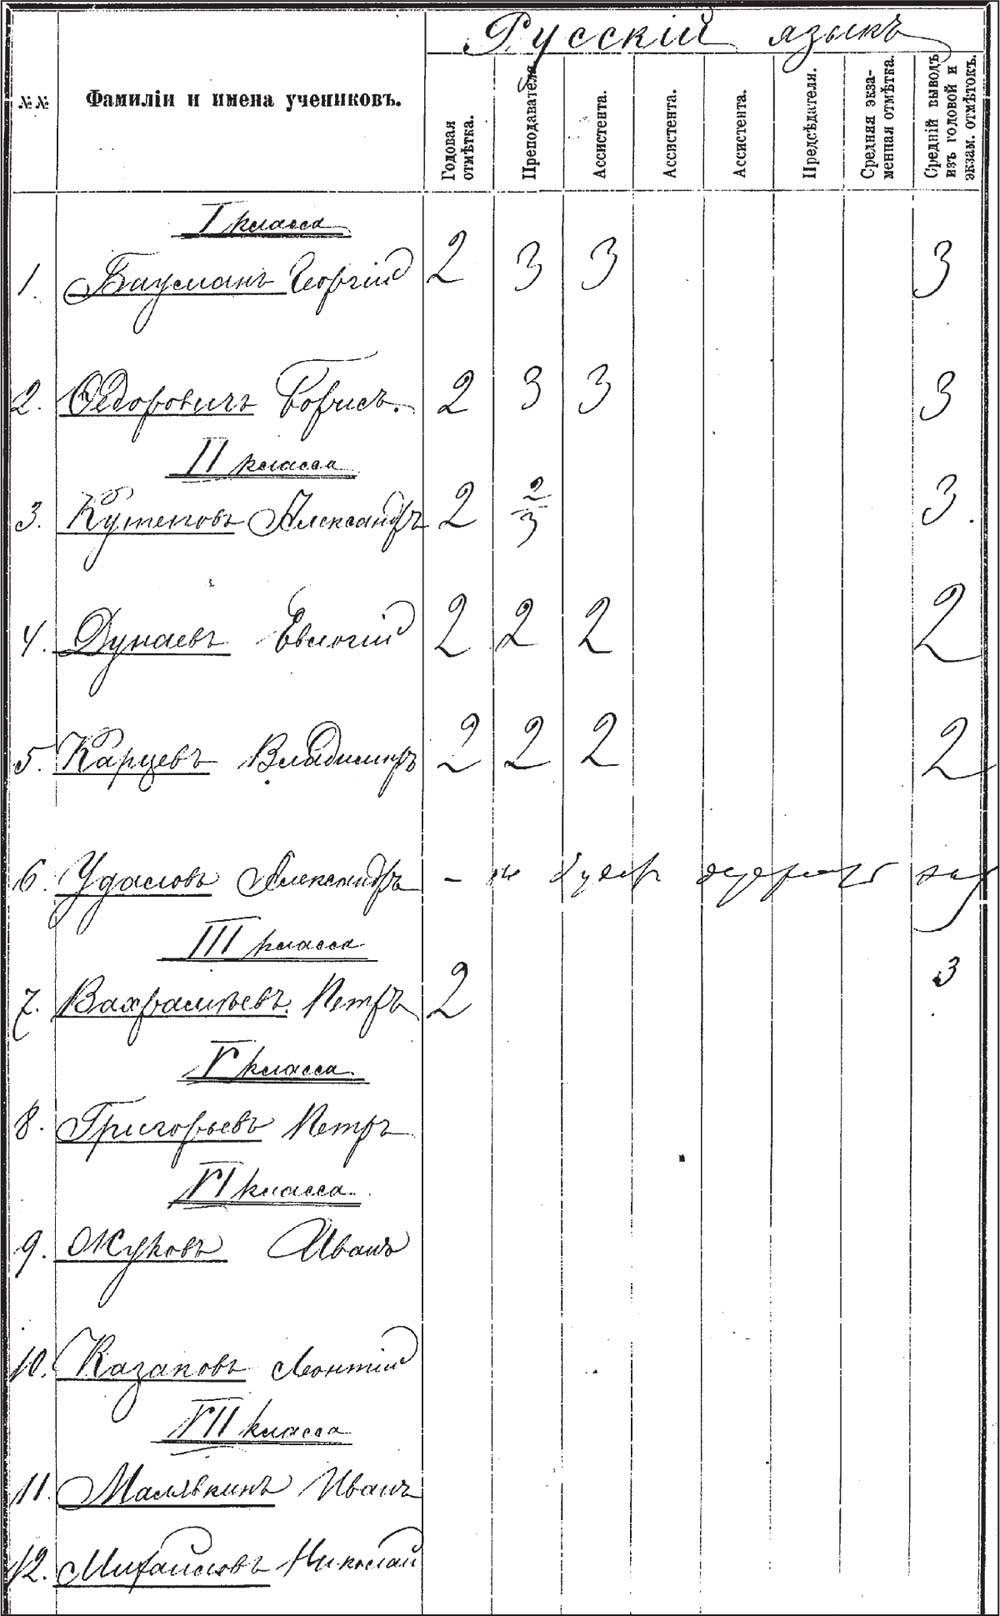 Русскій языкъ
№№ Фамиліи и имена учениковъ. Годовая отмѣтка. Преподавателя. Ассистента. Ассистента. Ассистента. Предсѣдателя. Средняя экза-менная отмѣтка. Средній выводъ изъ годовой и экзам. отмѣтокъ.
I класса
1. Бауманъ Георгій 2 3 3 3
2. Ѳедоровичъ Борисъ. 2 3 3 3
II класса
3. Кутеповъ Александръ 2 2/3 3.
4. Дунаевъ Евлогій 2 2 2 2
5. Карцевъ Владимиръ 2 2 2 2
6. Удаловъ Александръ - не будетъ держать
III класса
7. Вахрамѣевъ Петръ 2 3
V класса
8. Григорьевъ Петръ
VI класса
9. Жуковъ Иванъ
10. Казаковъ Леонтій
VII класса
11. Малявкинъ Иванъ
12. Михайловъ Николай